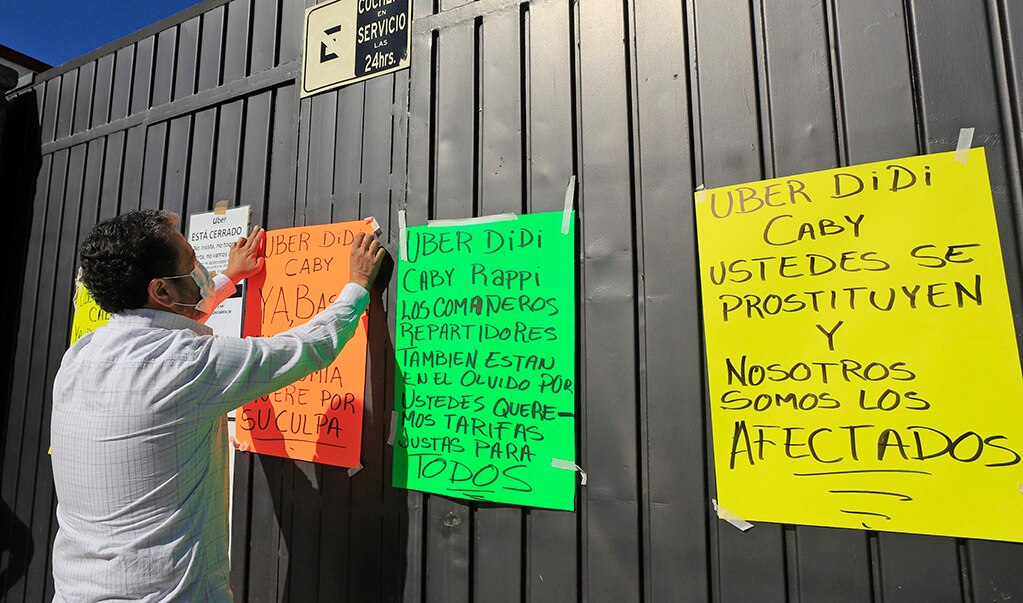 EN
SERVICIO
LAS
24hrs.
Uber
ESTÁ CERRADO
No insista, no
no vamos
UBER DiDi
CABY
YA, BAS
POR
SU CULPA
UBER DiDi
CABY Rappi
LOS COMAÑEROS
REPARTIDORES
TAMBIEN ESTAN
EN EL OLVIDO POR
USTEDES QUERE-
MOS TARIFAS
JUSTAS PARA
TODOS
UBER DiDi
CABY
USTEDES SE
PROSTITUYEN
Y
NOSOTROS
SOMOS LOS
AFECTADOS